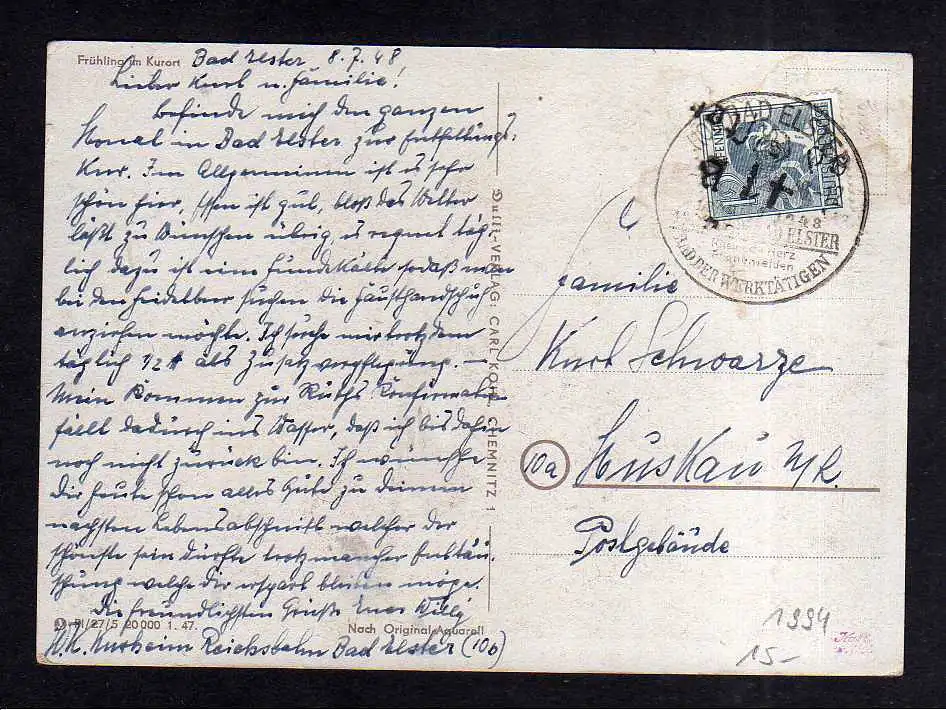 Frühling im Kurort Bad Elster 8.7.48
Lieber Kurt u. Familie!
Befinde mich den ganzen
Monat in Bad Elster zur Entfettungs=
Kur. Im Allgemeinen ist es sehr
schön hier, Essen ist gut, bloß das Wetter
läßt zu Wünschen übrig, es regnet täg-
lich dazu ist eine Hundekälte sodaß man
bei den Heidelbeer suchen die Fausthandschuh
anziehen möchte. Ich suche mir trotzdem
täglich 1/2 als Zusatzverpflegung. –
Mein Kommen zur Ruths Konfirmation
fällt dadurch ins Wasser, daß ich bis dahin
noch nicht zurück bin. Ich wünsche
Dir heute schon alles Gute zu Deinem
nächsten Lebensabschnitt welcher der
schönste sein dürfte trotz mancher Enttäu-
schung welche Dir erspart bleiben möge.
Die freundlichsten Grüße Euer Willy
Pl/27/5 20000 1. 47. Nach Original-Aquarell
Kurheim Reichsbahn Bad Elster (10b)
VERLAG CARL KOHL CHEMNITZ 1
BAD ELSTER
48
BAD ELSTER
Herz
BAD DER WERKTÄTIGEN
Familie
Kurt Schwarze
10a
Muskau
Postgebäude
1994
15-